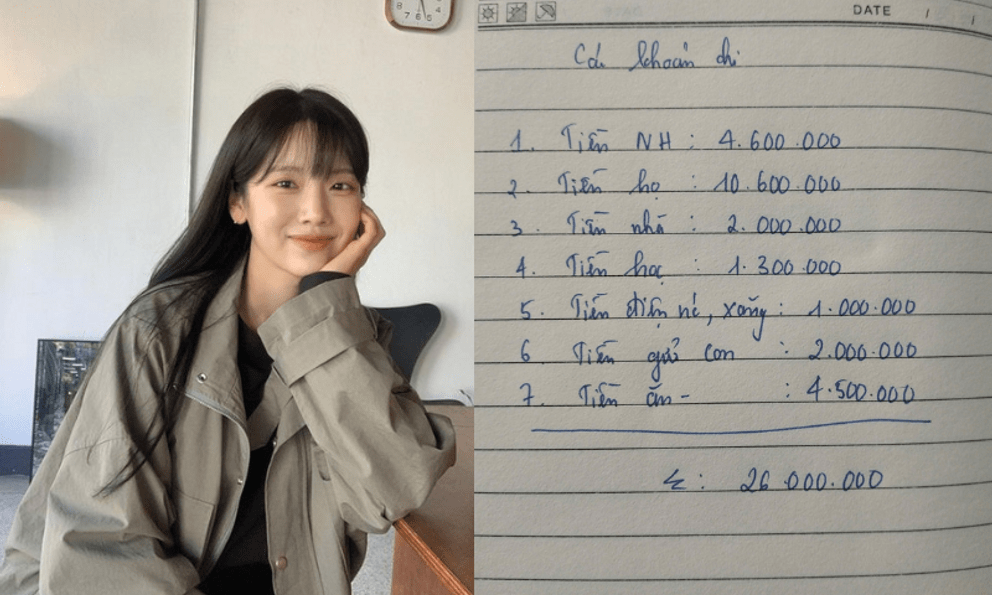 DATE / /
Các khoản chi
1. Tiền NH : 4.600.000
2. Tiền họ : 10.600.000
3. Tiền nhà : 2.000.000
4. Tiền học : 1.300.000
5. Tiền điện nc, xăng : 1.000.000
6 Tiền gửi con : 2.000.000
7. Tiền ăn - : 4.500.000
Σ : 26.000.000